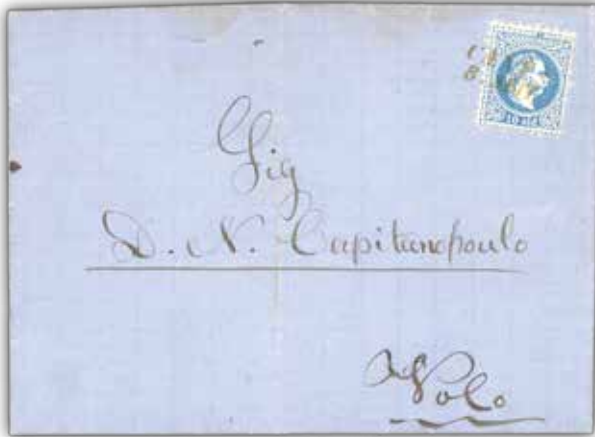 Sig
D. N. Capitanopoulo
Volo
10 sld